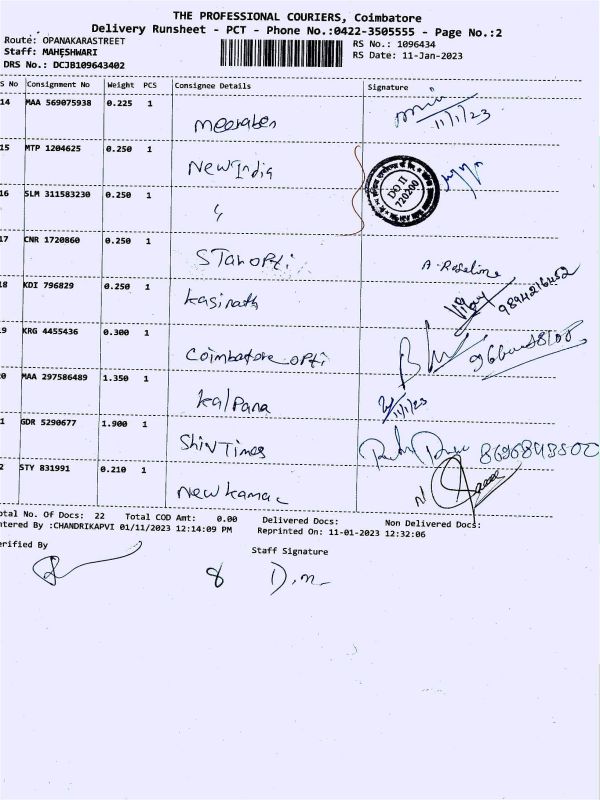 THE PROFESSIONAL COURIERS, Coimbatore
Delivery Runsheet - PCT - Phone No.:0422-3505555 - Page No.:2
Route: OPANAKARASTREET
Staff: MAHESHWARI
DRS No.: DCJB109643402
RS No.: 1096434
RS Date: 11-Jan-2023
S No Consignment No Weight PCS Consignee Details Signature
14 MAA 569075938 0.225 1 meeraben 11/1/23
15 MTP 1204625 0.250 1 New India
DO II 720200
16 SLM 311583230 0.250 1 "
17 CNR 1720860 0.250 1 STar opti A. Roseline
18 KDI 796829 0.250 1 kasinath Vijay 9894216452
9 KRG 4455436 0.300 1 Coimbatore opti
0 MAA 297586489 1.350 1 kalpana 11/1/23
1 GDR 5290677 1.900 1 Shiv Times
2 STY 831991 0.210 1 New kamac
otal No. Of Docs: 22 Total COD Amt: 0.00 Delivered Docs: Non Delivered Docs:
ntered By :CHANDRIKAPVI 01/11/2023 12:14:09 PM Reprinted On: 11-01-2023 12:32:06
erified By Staff Signature
8 D.m